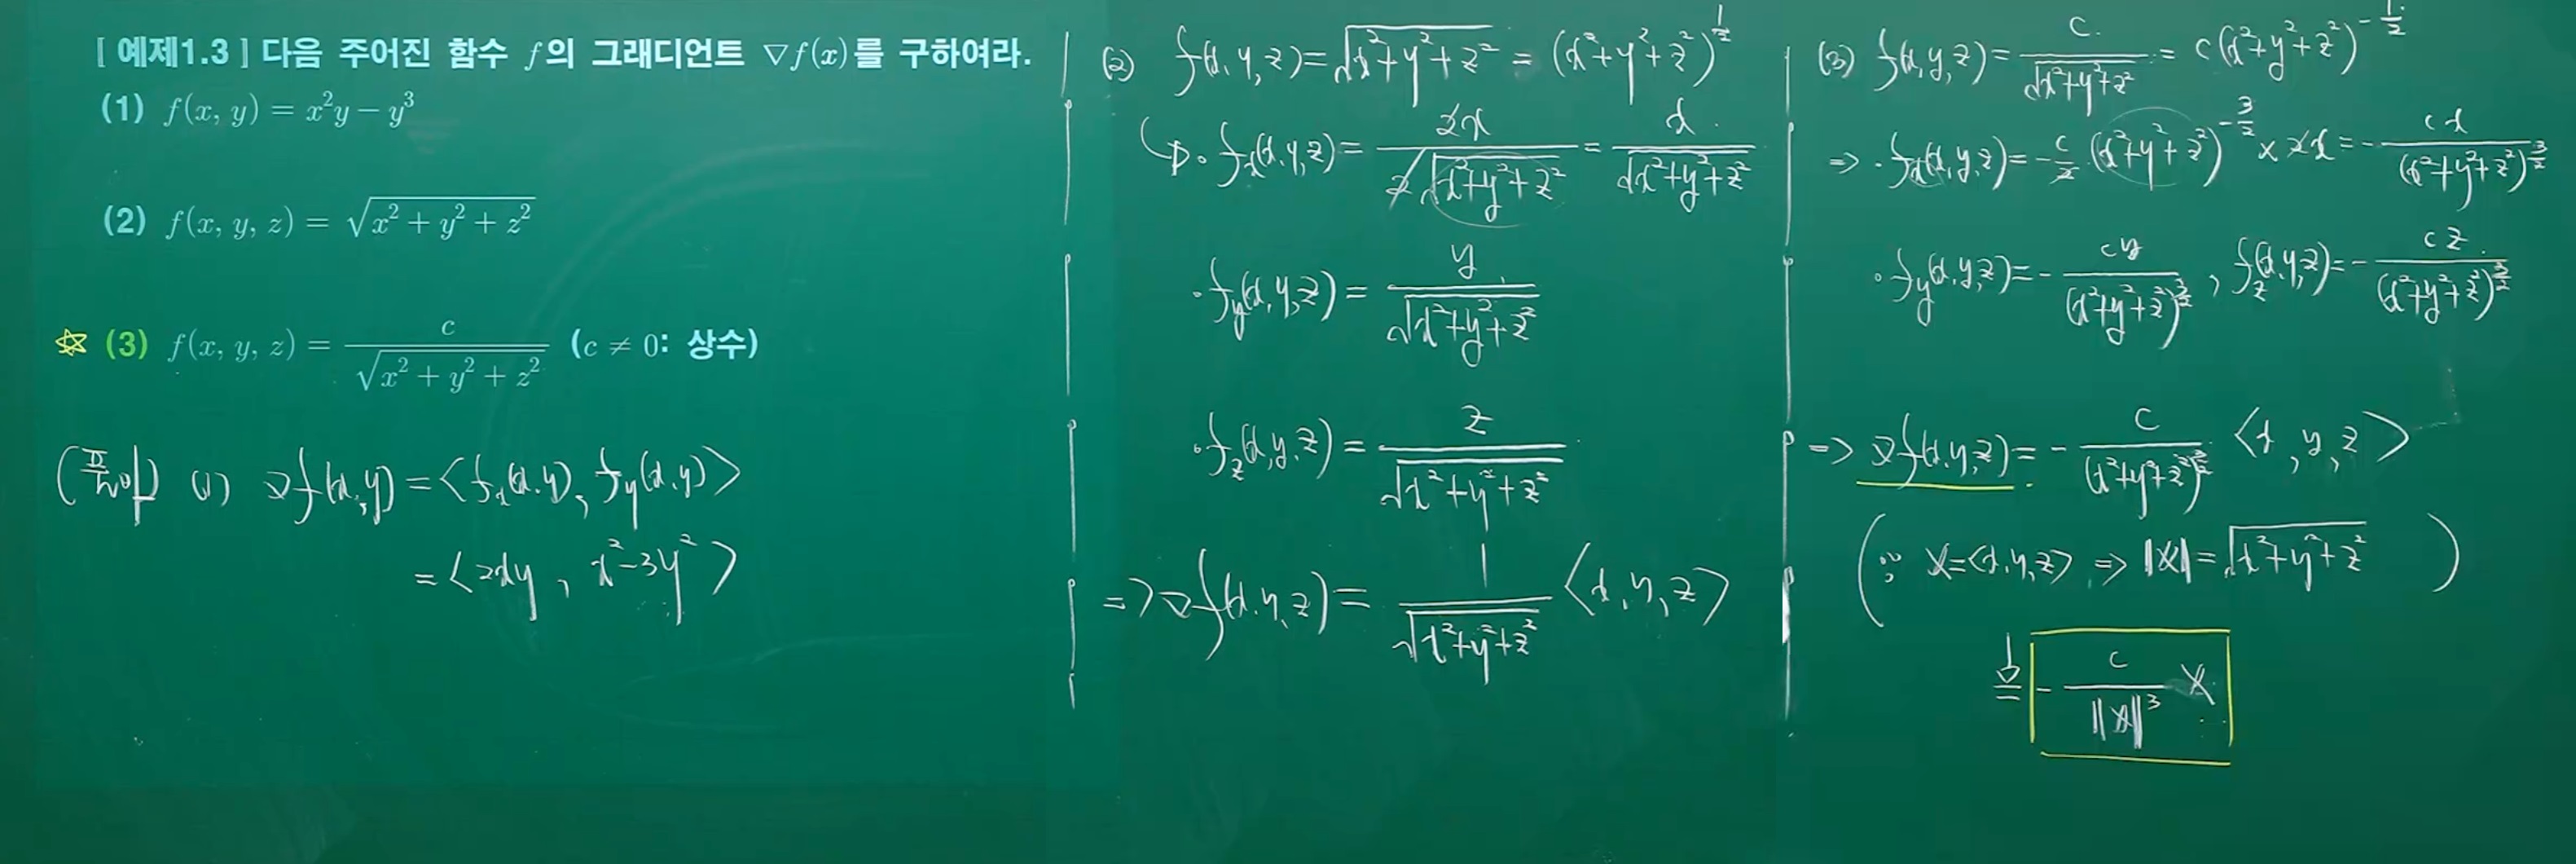 [ 예제1.3 ] 다음 주어진 함수 f의 그래디언트 ∇f(x)를 구하여라.
(1) f(x, y) = x²y − y³
(2) f(x, y, z) = √(x² + y² + z²)
☆ (3) f(x, y, z) = c / √(x² + y² + z²) (c ≠ 0: 상수)
(풀이) (1) ∇f(x,y) = <f_x(x,y), f_y(x,y)>
= <2xy, x²−3y²>
(2) f(x,y,z) = √(x²+y²+z²) = (x²+y²+z²)^(1/2)
↳ · f_x(x,y,z) = 2x / 2√(x²+y²+z²) = x / √(x²+y²+z²)
· f_y(x,y,z) = y / √(x²+y²+z²)
· f_z(x,y,z) = z / √(x²+y²+z²)
=> ∇f(x,y,z) = 1 / √(x²+y²+z²) <x,y,z>
(3) f(x,y,z) = c / √(x²+y²+z²) = c(x²+y²+z²)^(−1/2)
=> · f_x(x,y,z) = −c/2 (x²+y²+z²)^(−3/2) × 2x = − cx / (x²+y²+z²)^(3/2)
· f_y(x,y,z) = − cy / (x²+y²+z²)^(3/2), f_z(x,y,z) = − cz / (x²+y²+z²)^(3/2)
=> ∇f(x,y,z) = − c / (x²+y²+z²)^(3/2) <x,y,z>
(∵ X = <x,y,z> => ‖X‖ = √(x²+y²+z²))
= − c / ‖X‖³ X